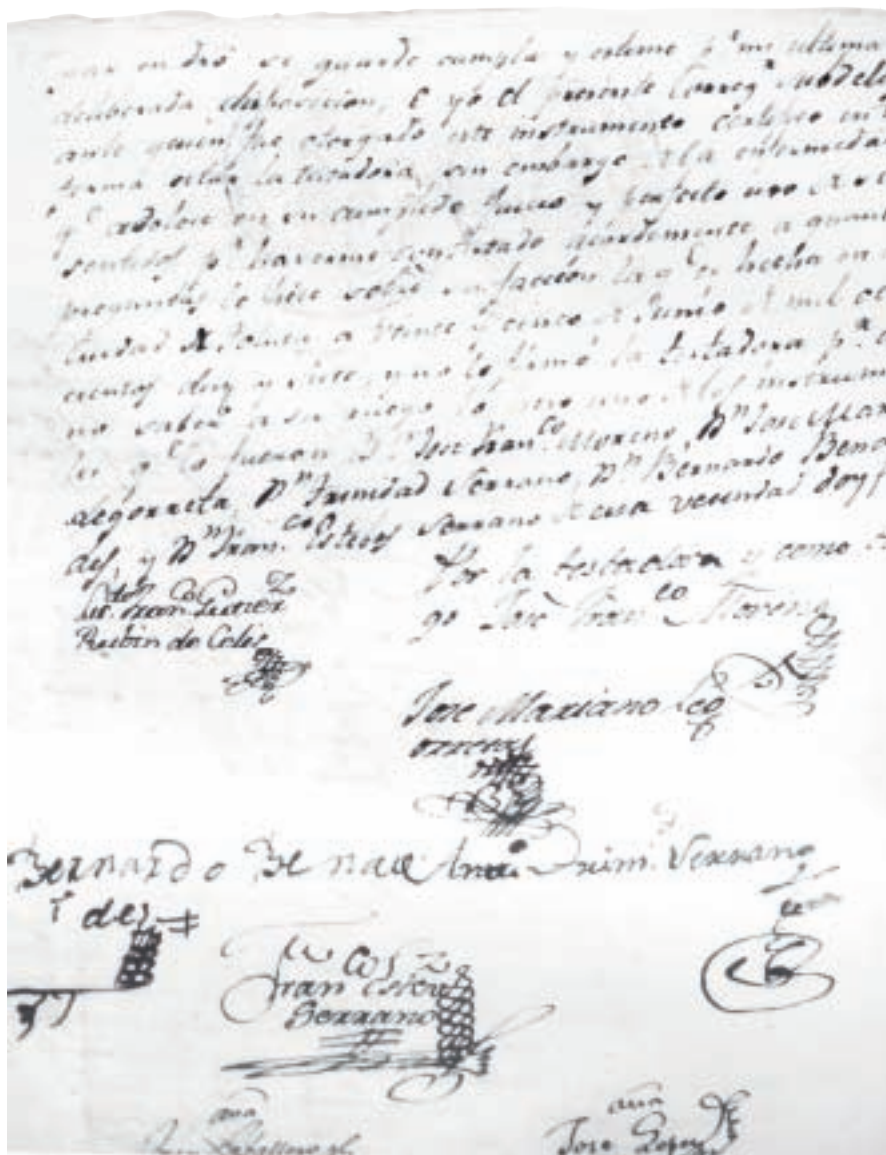 en dro se guarde cumpla y ex̃teme pr. mi ultima
deliberada disposicion, e yo el presente Correg.r subdel
ante quien fue otorgado este instrumento certifico en
forma estar la testadora, sin embargo de la enfermeda
q.e adolece en su cumplido Juicio y perfecto uso de s
sentidos p.r haverme contestado acordemente a quan
preguntas le hice sobre su faccion la q.e es hecha en
Ciudad de Toluca a veinte y cinco de Junio de mil oc
cientos diez y siete, y no lo firmó la testadora p.r
no saber a su ruego lo hizo uno de los instrum
les q.e lo fueron D.n Jose Fran.co Moreno, D.n Jose Mar
Legorreta, D.n Trinidad Serrano, D.n Bernardo Bena
des, y D.n Fran.co Estevez Serrano de esta vecindad doy f
Por la testadora y como
go José Fran.co Moreno
Lic. Fran.co Gutierz
Rubin de Celis
Jose Mariano Leg
orreta
Bernardo Bena
des
Anto. Trini. Serrano
Fran.co Estevz
Serrano
ava
ava
Jose Lopez